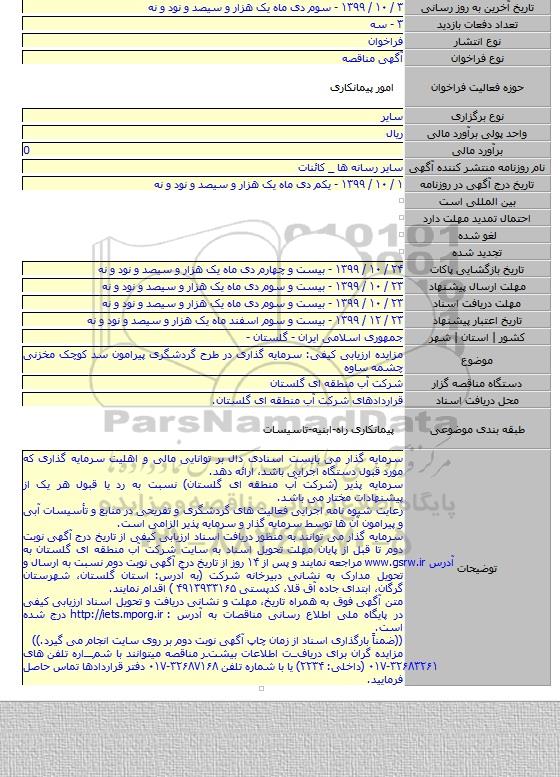 تاریخ آخرین به روز رسانی ۳ / ۱۰ / ۱۳۹۹ - سوم دی ماه یک هزار و سیصد و نود و نه
تعداد دفعات بازدید ۳ - سه
نوع انتشار فراخوان
نوع فراخوان آگهی مناقصه
حوزه فعالیت فراخوان امور پیمانکاری
نوع برگزاری سایر
واحد پولی برآورد مالی ریال
برآورد مالی 0
نام روزنامه منتشر کننده آگهی سایر رسانه ها _ کائنات
تاریخ درج آگهی در روزنامه ۱ / ۱۰ / ۱۳۹۹ - یکم دی ماه یک هزار و سیصد و نود و نه
بین المللی است
احتمال تمدید مهلت دارد
لغو شده
تجدید شده
تاریخ بازگشایی پاکات ۲۴ / ۱۰ / ۱۳۹۹ - بیست و چهارم دی ماه یک هزار و سیصد و نود و نه
مهلت ارسال پیشنهاد ۲۳ / ۱۰ / ۱۳۹۹ - بیست و سوم دی ماه یک هزار و سیصد و نود و نه
مهلت دریافت اسناد ۲۳ / ۱۰ / ۱۳۹۹ - بیست و سوم دی ماه یک هزار و سیصد و نود و نه
تاریخ اعتبار پیشنهاد ۲۳ / ۱۲ / ۱۳۹۹ - بیست و سوم اسفند ماه یک هزار و سیصد و نود و نه
کشور | استان | شهر جمهوری اسلامی ایران - گلستان -
موضوع مزایده ارزیابی کیفی: سرمایه گذاری در طرح گردشگری پیرامون سد کوچک مخزنی
چشمه ساوه
دستگاه مناقصه گزار شرکت آب منطقه ای گلستان
محل دریافت اسناد قراردادهای شرکت آب منطقه ای گلستان
طبقه بندی موضوعی پیمانکاری راه-ابنیه-تاسیسات
ParsNamadData
توضیحات
سرمایه گذار می بایست اسنادی دال بر توانایی مالی و اهلیت سرمایه گذاری که
مورد قبول دستگاه اجرایی باشد، ارائه دهد.
سرمایه پذیر (شرکت آب منطقه ای گلستان) نسبت به رد یا قبول هر یک از
پیشنهادات مختار می باشد.
رعایت شیوه نامه اجرایی فعالیت های گردشگری و تفریحی در منابع و تأسیسات آبی
و پیرامون آن ها توسط سرمایه گذار و سرمایه پذیر الزامی است.
سرمایه گذار می توانند به منظور دریافت اسناد ارزیابی کیفی از تاریخ درج آگهی نوبت
دوم تا قبل از پایان مهلت تحویل اسناد به سایت شرکت آب منطقه ای گلستان به
آدرس www.gsrw.ir مراجعه نمایند و پس از ۱۴ روز از تاریخ درج آگهی نوبت دوم نسبت به ارسال و
تحویل مدارک به نشانی دبیرخانه شرکت (به آدرس: استان گلستان، شهرستان
گرگان، ابتدای جاده آق قلا، کدپستی ۴۹۱۳۹۳۳۱۶۵ ) اقدام نمایند.
متن آگهی فوق به همراه تاریخ، مهلت و نشانی دریافت و تحویل اسناد ارزیابی کیفی
در پایگاه ملی اطلاع رسانی مناقصات به آدرس : http://iets.mporg.ir درج شده
است.
((ضمناً بارگذاری اسناد از زمان چاپ آگهی نوبت دوم بر روی سایت انجام می گیرد.))
مزایده گران برای دریافـت اطلاعات بیشتـر مناقصه میتوانند با شمـــاره تلفن های
۰۱۷-۳۲۶۸۳۲۶۱ (داخلی: ۲۲۳۴) یا با شماره تلفن ۳۲۶۸۷۱۶۸-۰۱۷ دفتر قراردادها تماس حاصل
فرمایید.